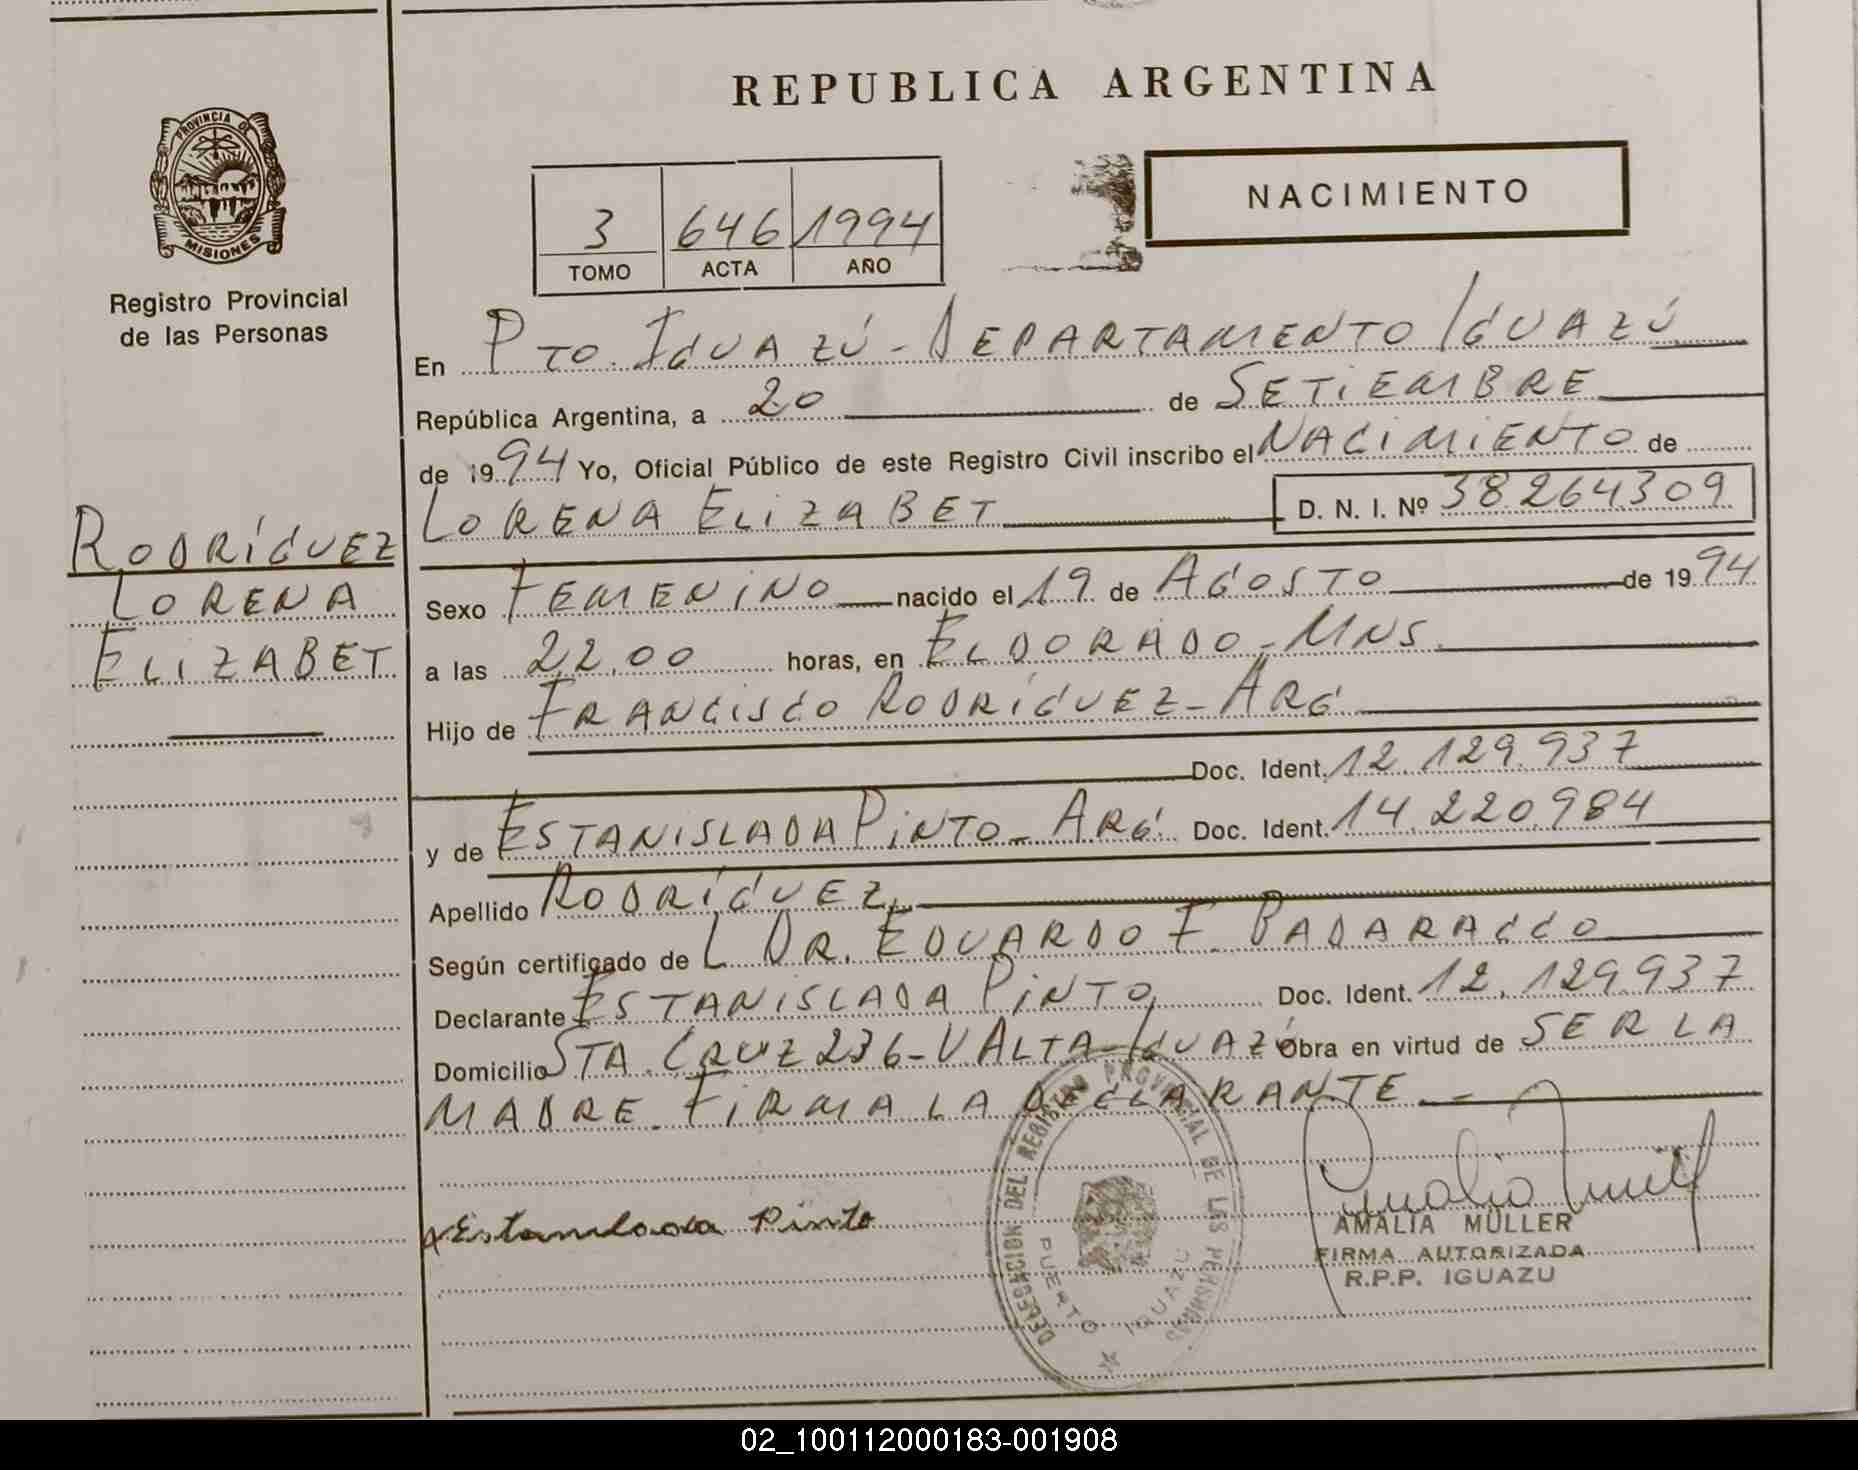 REPUBLICA ARGENTINA
PROVINCIA DE
MISIONES
Registro Provincial
de las Personas
NACIMIENTO
3 646 1994
TOMO ACTA AÑO
En PTO. IGUAZÚ - DEPARTAMENTO IGUAZÚ
República Argentina, a 20 de SETIEMBRE
de 1994 Yo, Oficial Público de este Registro Civil inscribo el NACIMIENTO de
LORENA ELIZABET D. N. I. Nº 38.264.309
RODRÍGUEZ
LORENA
ELIZABET
Sexo FEMENINO nacido el 19 de AGOSTO de 1994
a las 22.00 horas, en ELDORADO - MNS.
Hijo de FRANCISCO RODRÍGUEZ - ARG
Doc. Ident. 12.129.937
y de ESTANISLADA PINTO - ARG. Doc. Ident. 14.220.984
Apellido RODRÍGUEZ
Según certificado de L DR. EDUARDO F. BADARACCO
Declarante ESTANISLADA PINTO, Doc. Ident. 12.129.937
Domicilio STA. CRUZ 236 - V ALTA - IGUAZÚ Obra en virtud de SER LA
MADRE. FIRMA LA DECLARANTE. -
x Estanislada Pinto
DELEGACION DEL REGISTRO PROVINCIAL DE LAS PERSONAS
PUERTO IGUAZU
AMALIA MÜLLER
FIRMA AUTORIZADA
R.P.P. IGUAZU
02_100112000183-001908